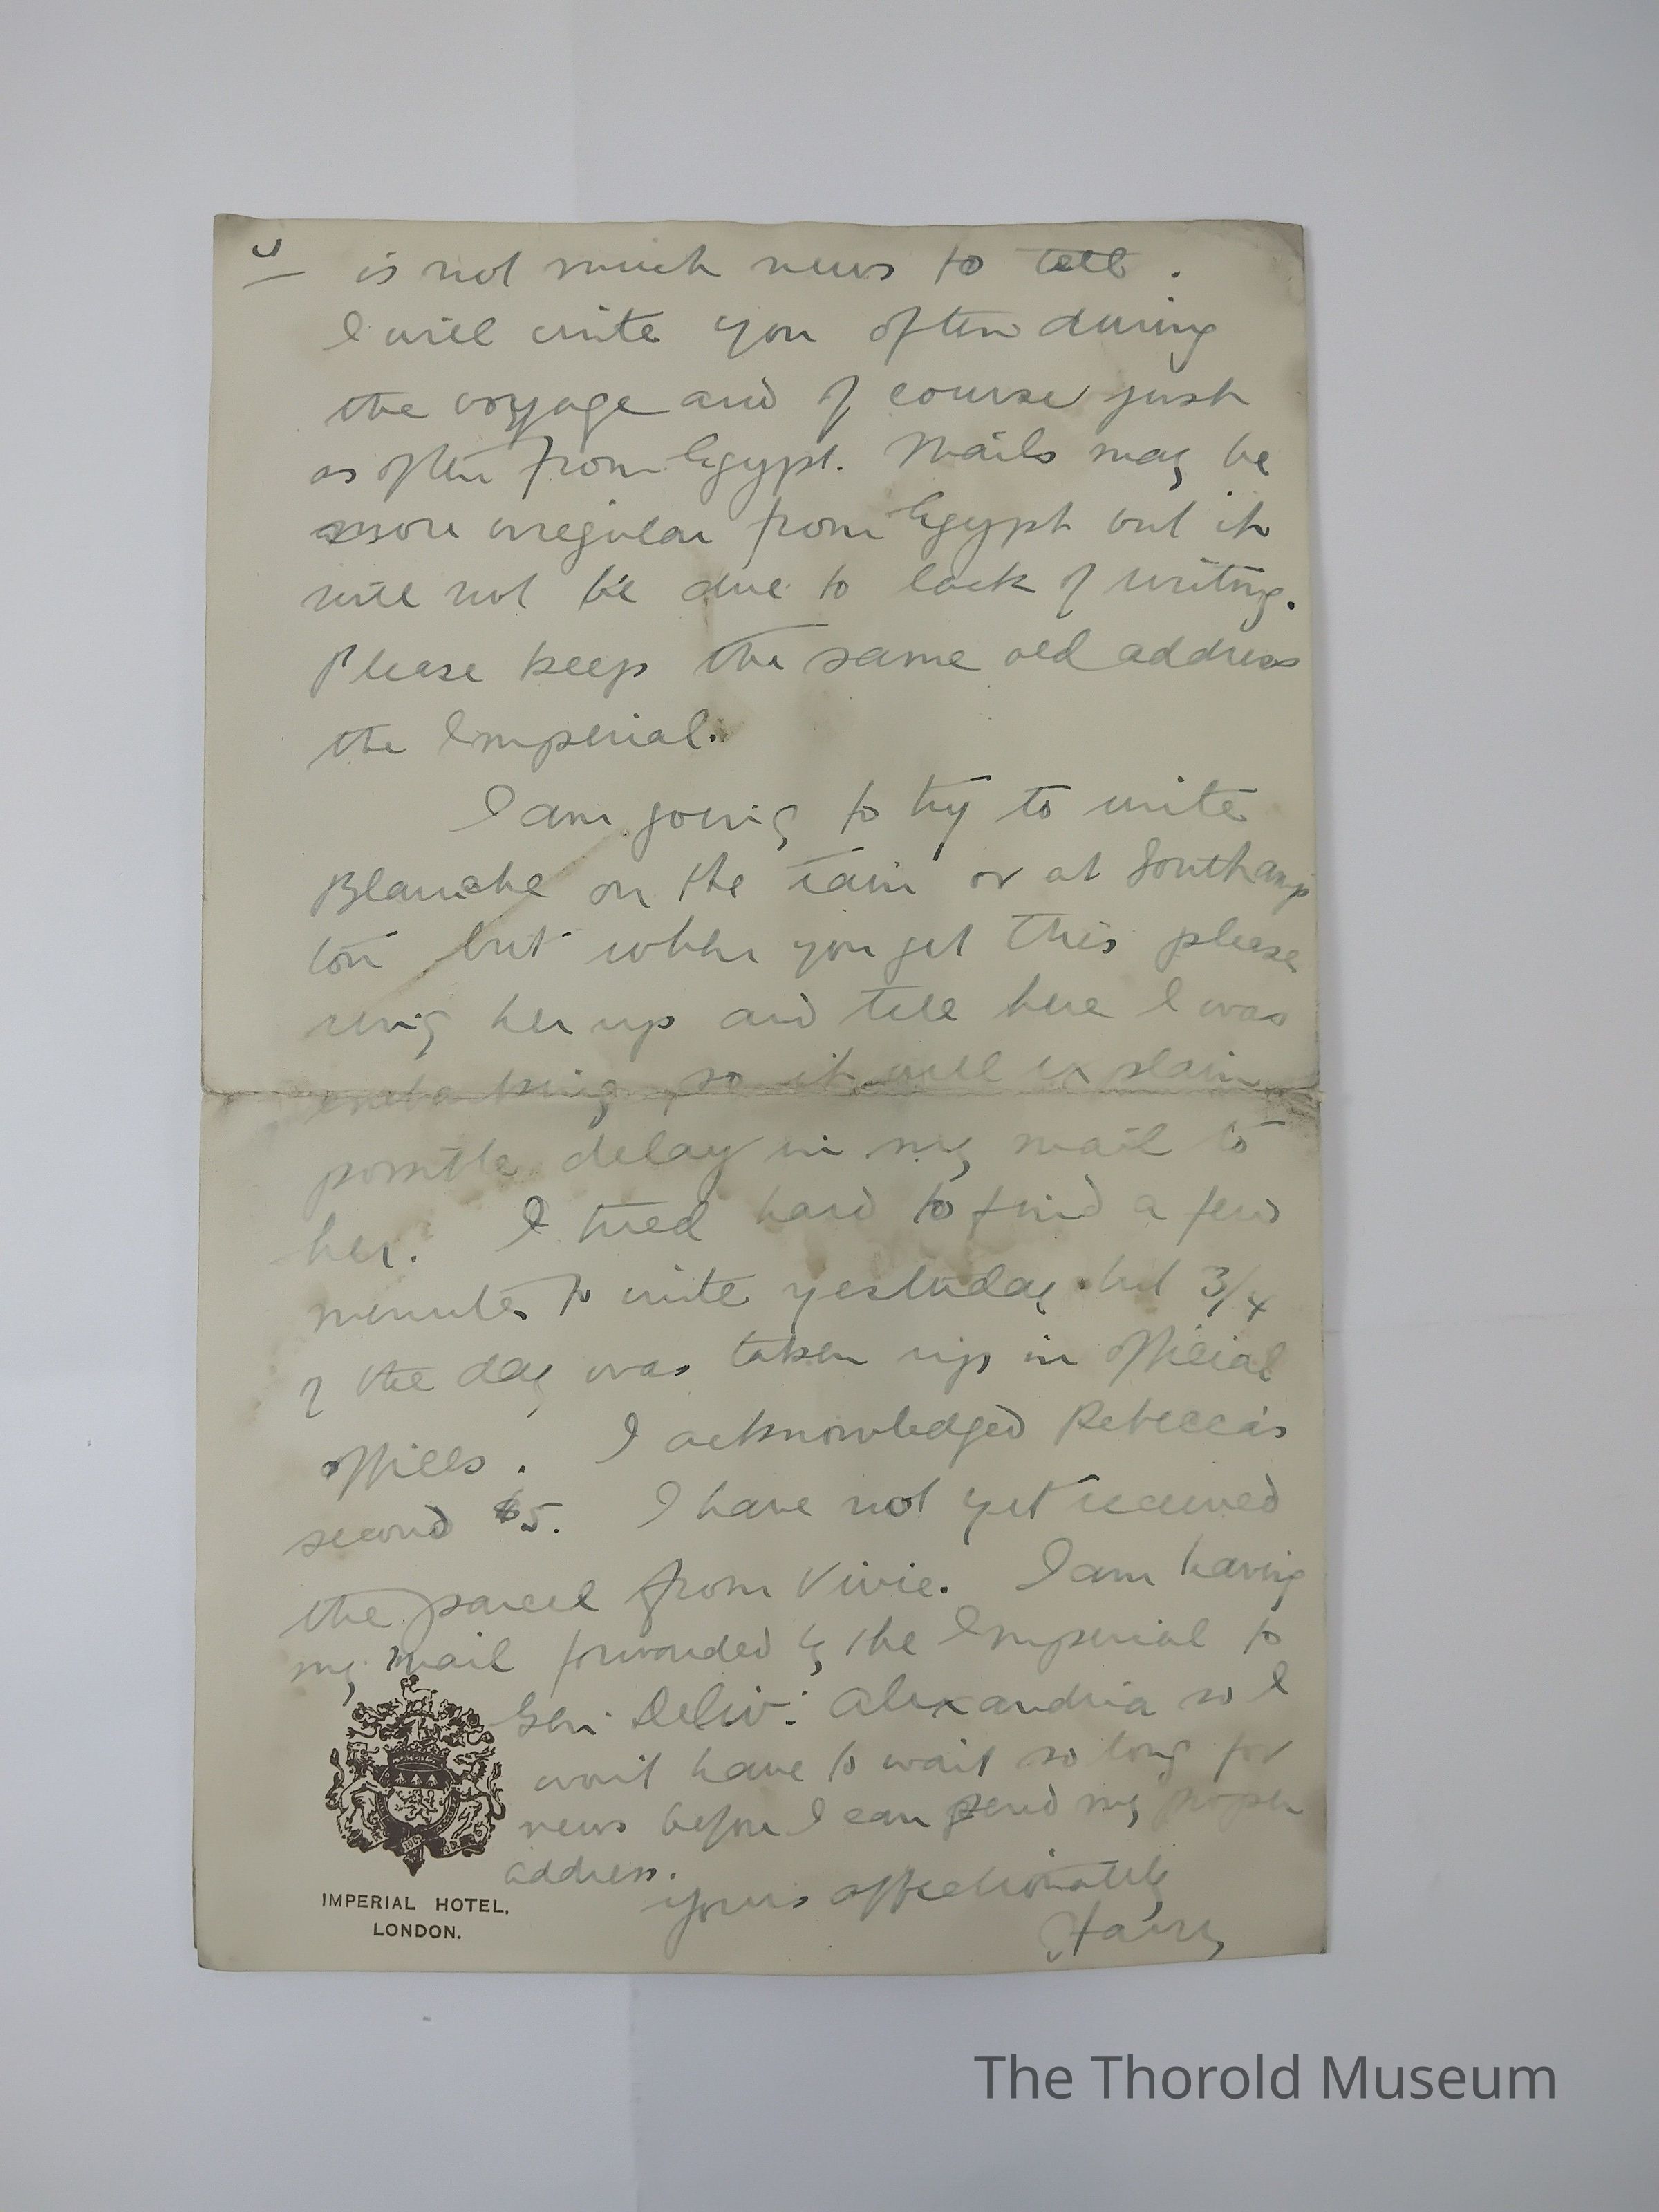 is not much news to tell.
I will write you often during
the voyage and of course just
as often from Egypt. Mails may be
more irregular from Egypt but it
will not be due to lack of writing.
Please keep the same old address
the Imperial.
I am going to try to write
Blanche on the train or at Southamp
ton but when you get this please
ring her up and tell here I was
embarking so it will explain
possible delay in my mail to
her. I tried hard to find a few
minutes to write yesterday but 3/4
of the day was taken up in official
offices. I acknowledged Rebecca's
second $5. I have not yet received
the parcel from Vivie. I am having
my mail forwarded by the Imperial to
Gen. Deliv. Alexandria so I
won't have to wait so long for
news before I can send my proper
address.
Yours affectionately
Harry
IMPERIAL HOTEL,
LONDON.
The Thorold Museum